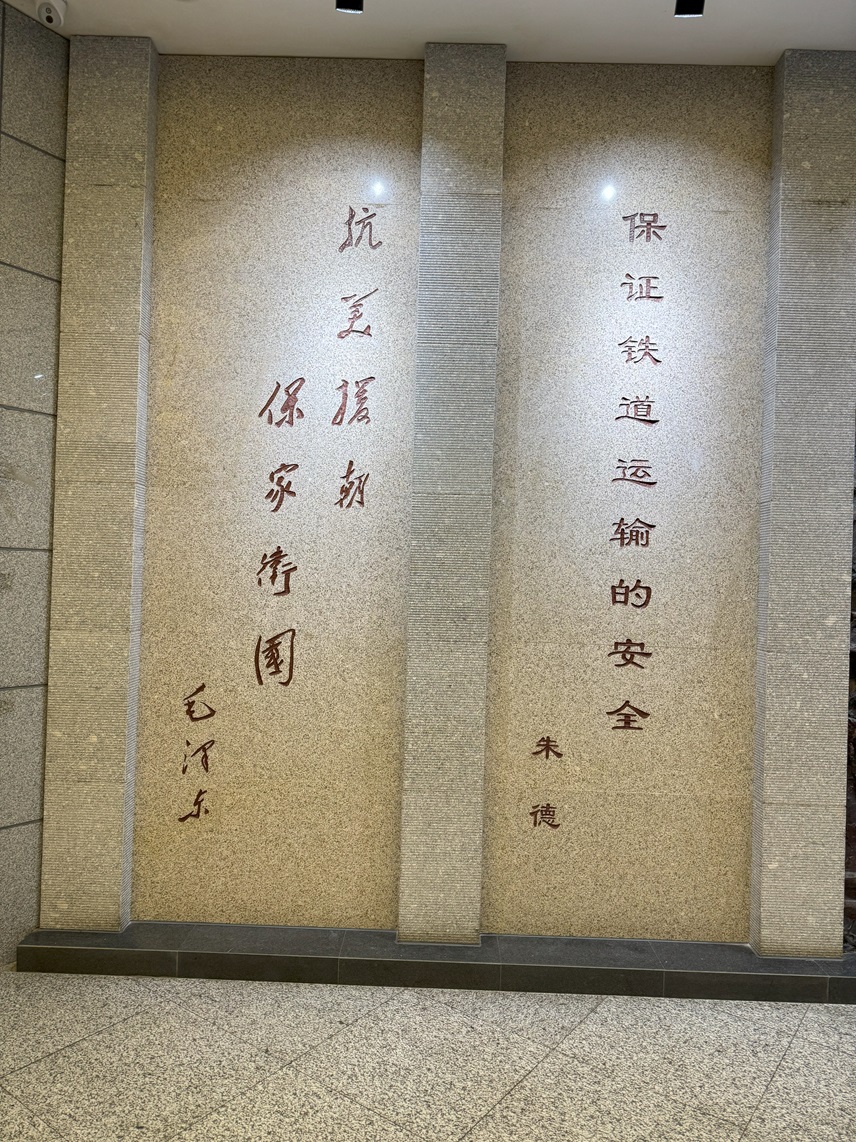 保证铁道运输的安全
朱德
抗美援朝
保家衛國
毛泽东